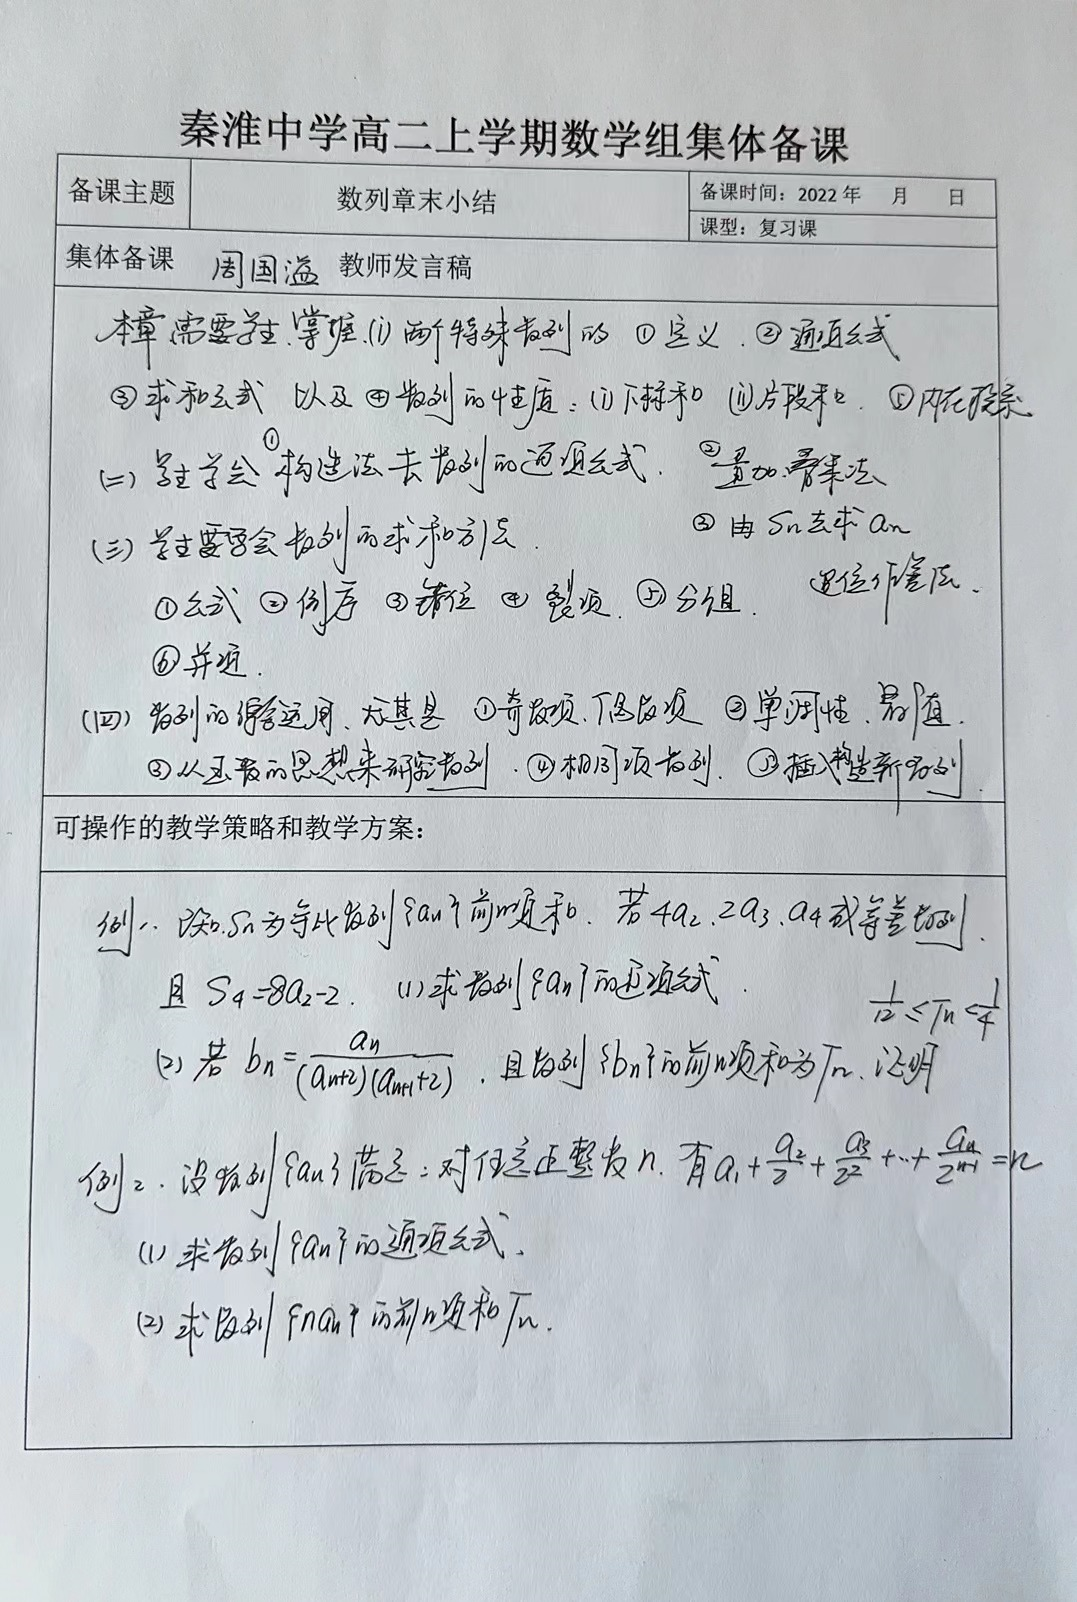 秦淮中学高二上学期数学组集体备课
备课主题 数列章末小结 备课时间：2022 年 月 日
课型：复习课
集体备课 周国溢 教师发言稿
本章需要学生掌握(i)两个特殊数列的 ①定义、②通项公式
③求和公式 以及 ④数列的性质：(i)下标和 (ii)片段和 ⑤内在联系
(二) 学生学会①构造法去数列的通项公式. ②叠加、叠乘法
③由 Sn 去求 an
(三) 学生要学会数列的求和方法.
退位作差法.
①公式 ②倒序 ③错位 ④裂项. ⑤分组.
⑥并项.
(四) 数列的综合运用、尤其是 ①奇数项、偶数项 ②单调性、最值.
③从函数的思想来研究数列. ④相同项数列. ⑤插入构造新数列.
可操作的教学策略和教学方案：
例一、已知Sn为等比数列{an}前n项和. 若4a2、2a3、a4成等差数列.
且 S4=8a2-2. (1)求数列{an}的通项公式.
(2) 若 bn = an/((an+2)(an+1+2)). 且数列{bn}的前n项和为Tn. 证明 1/12 ≤ Tn < 1/4
例二、设数列{an}满足：对任意正整数n. 有 a1 + a2/2 + a3/2² + … + an/2ⁿ⁻¹ = n
(1) 求数列{an}的通项公式.
(2) 求数列{nan}的前n项和Tn.